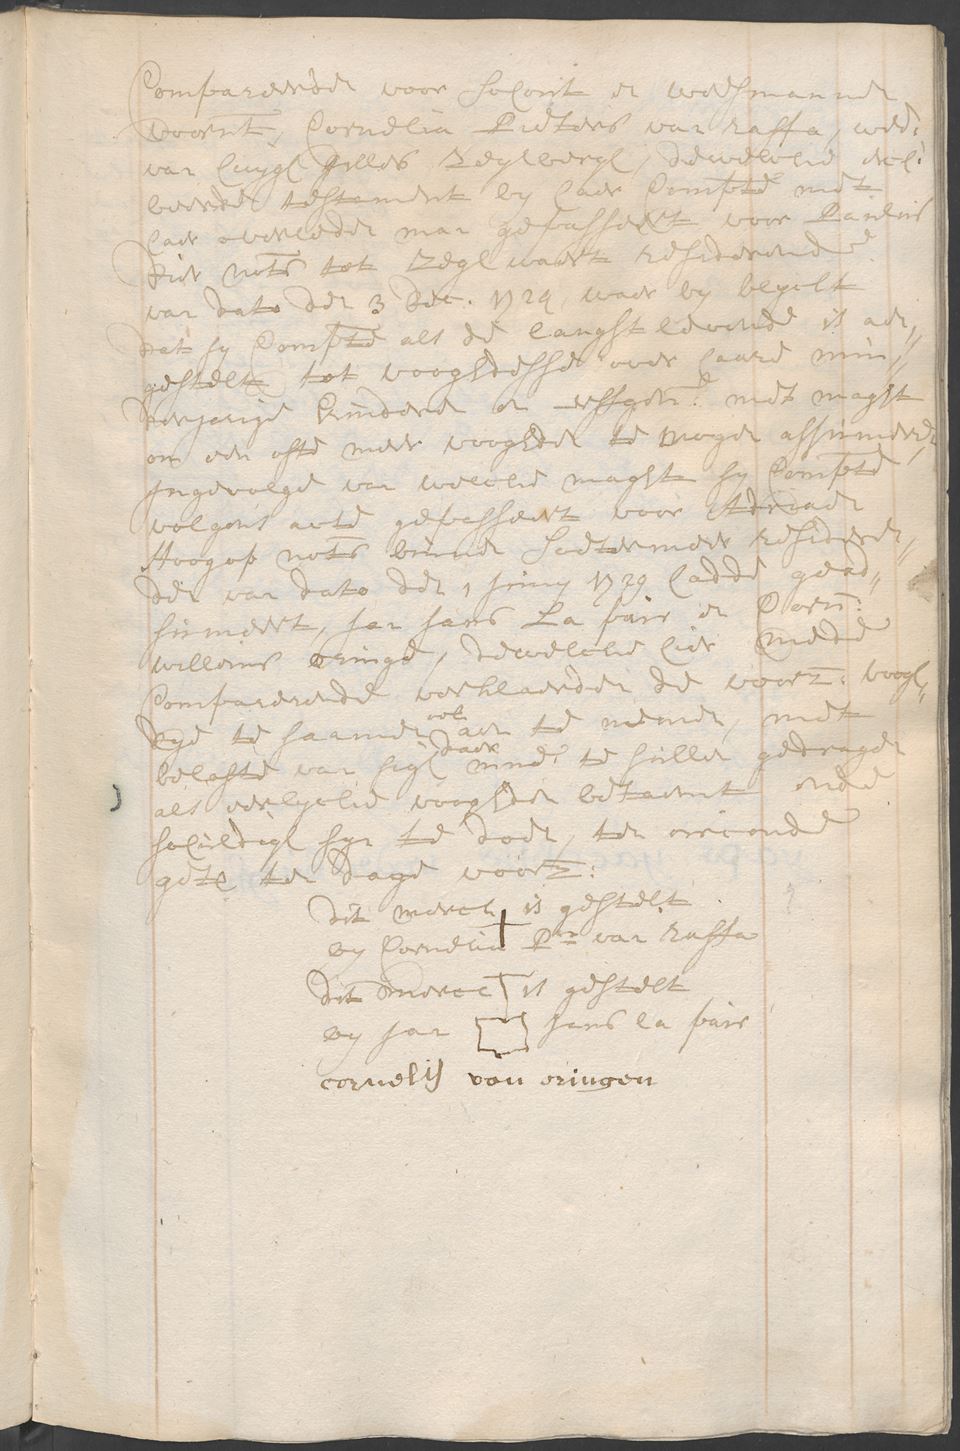 Compareerde voor schout en weesmannen
voornt, Cornelia Pieters van Haffa, wed:
van Huygh Gilles Zeghbergh, dewelcke exhi
beerde testament by haer Compte met
haer overleden man gepasseert voor Paulus
not:s tot Zeghwaert residerende
van dato den 3 dec. 1724, waer by blyckt
dat sy Compte als de langst levende is aen
gestelt tot vooghdesse over haare min
derjarige kinderen en erffgen: met maght
om een ofte meer vooghden te mogen assumeeren
Ingevolge van welcke maght sy Compte
volgens acte gepasseert voor Adriaen
Hoogop not:s binnen Soetermeer resideren
den van dato den 1 juny 1729 hadde gead
sumeert, Jan Jans La fair en Corn:
willems eringe, dewelcke hier mede
Compareerende verklaerden de voorz: voogh
dye te saamen aen te nemen, met
ook daer
belofte van sigh inne te sullen gedragen
als eerlycke vooghden betaemt ende
schuldigh syn te doen, ten oirconde
get: ten dage voorz:
dit merck is gestelt
by Cornelia P:rs van Haffa
dit merck is gestelt
by Jan Jans la fair
cornelis van eringen